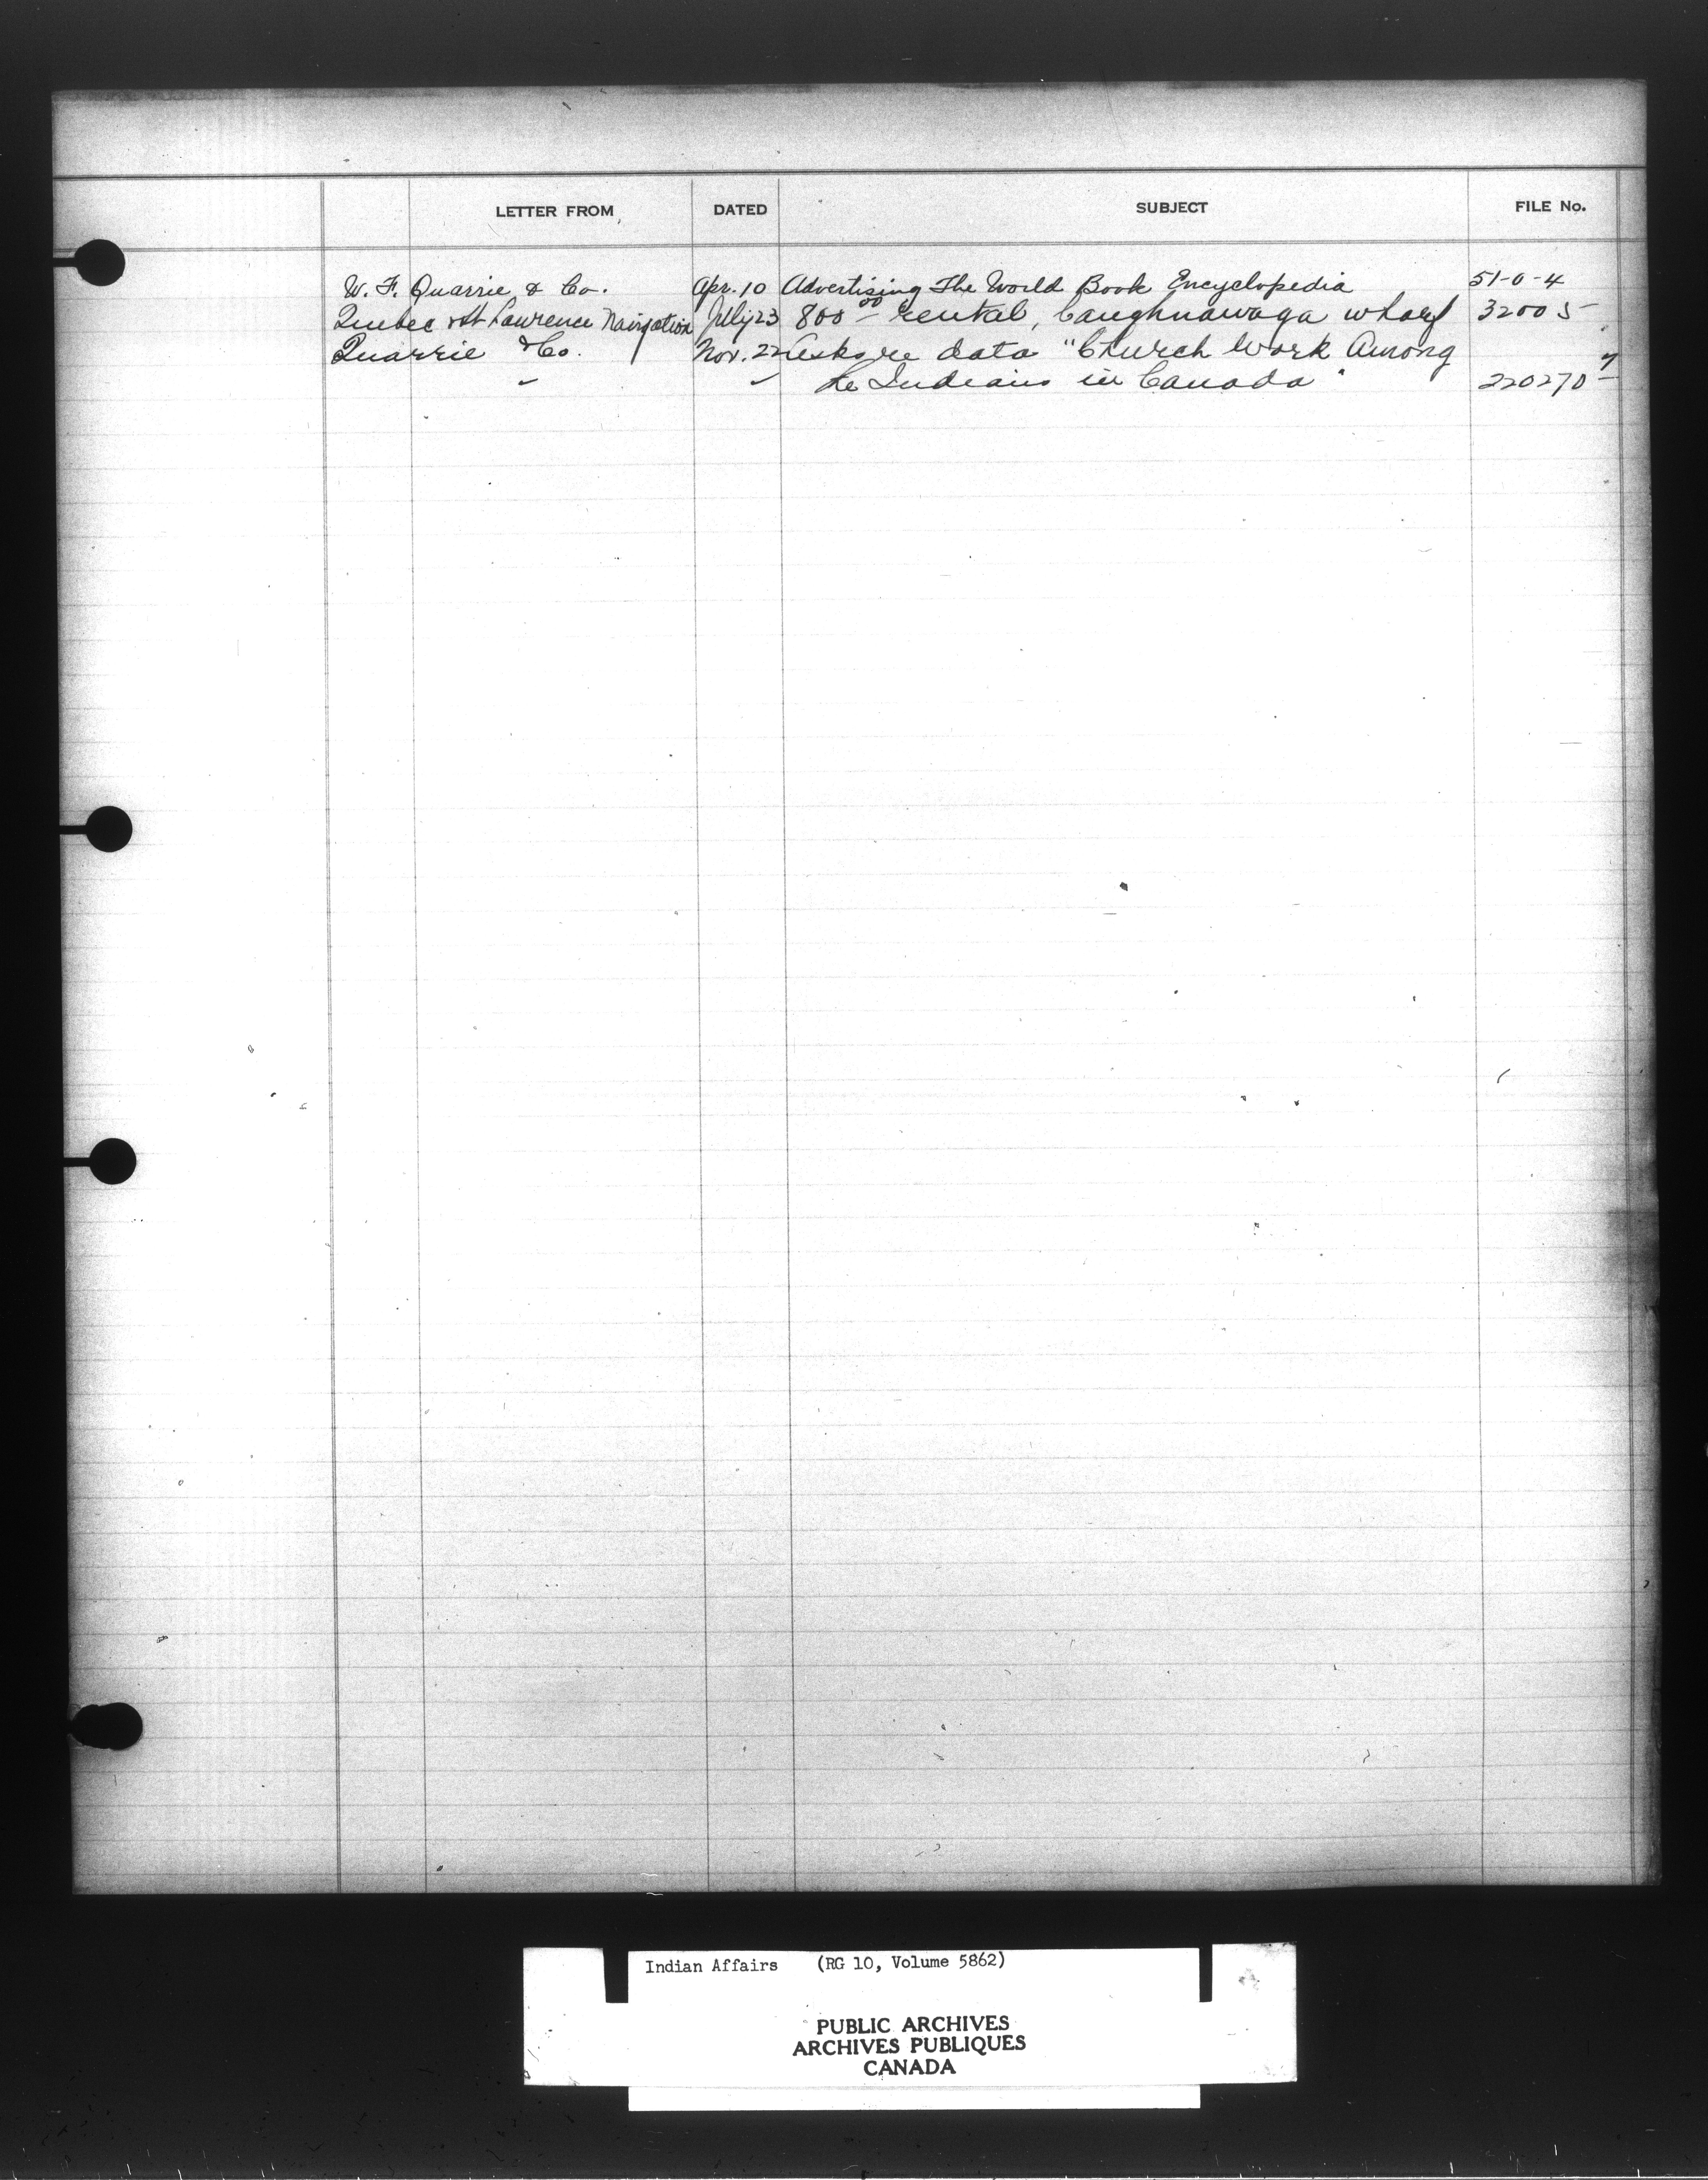 LETTER FROM DATED SUBJECT FILE No.
W. F. Quarrie & Co. Apr. 10 Advertising The World Book Encyclopedia 51-0-4
Quebec & St Lawrence Navigation July 23 800 00 rental, Caughnawaga wharf 32005
Quarrie & Co. Nov. 22 Asks re data "Church Work Among
the Indians in Canada" 220270-7
Indian Affairs (RG 10, Volume 5862)
PUBLIC ARCHIVES
ARCHIVES PUBLIQUES
CANADA